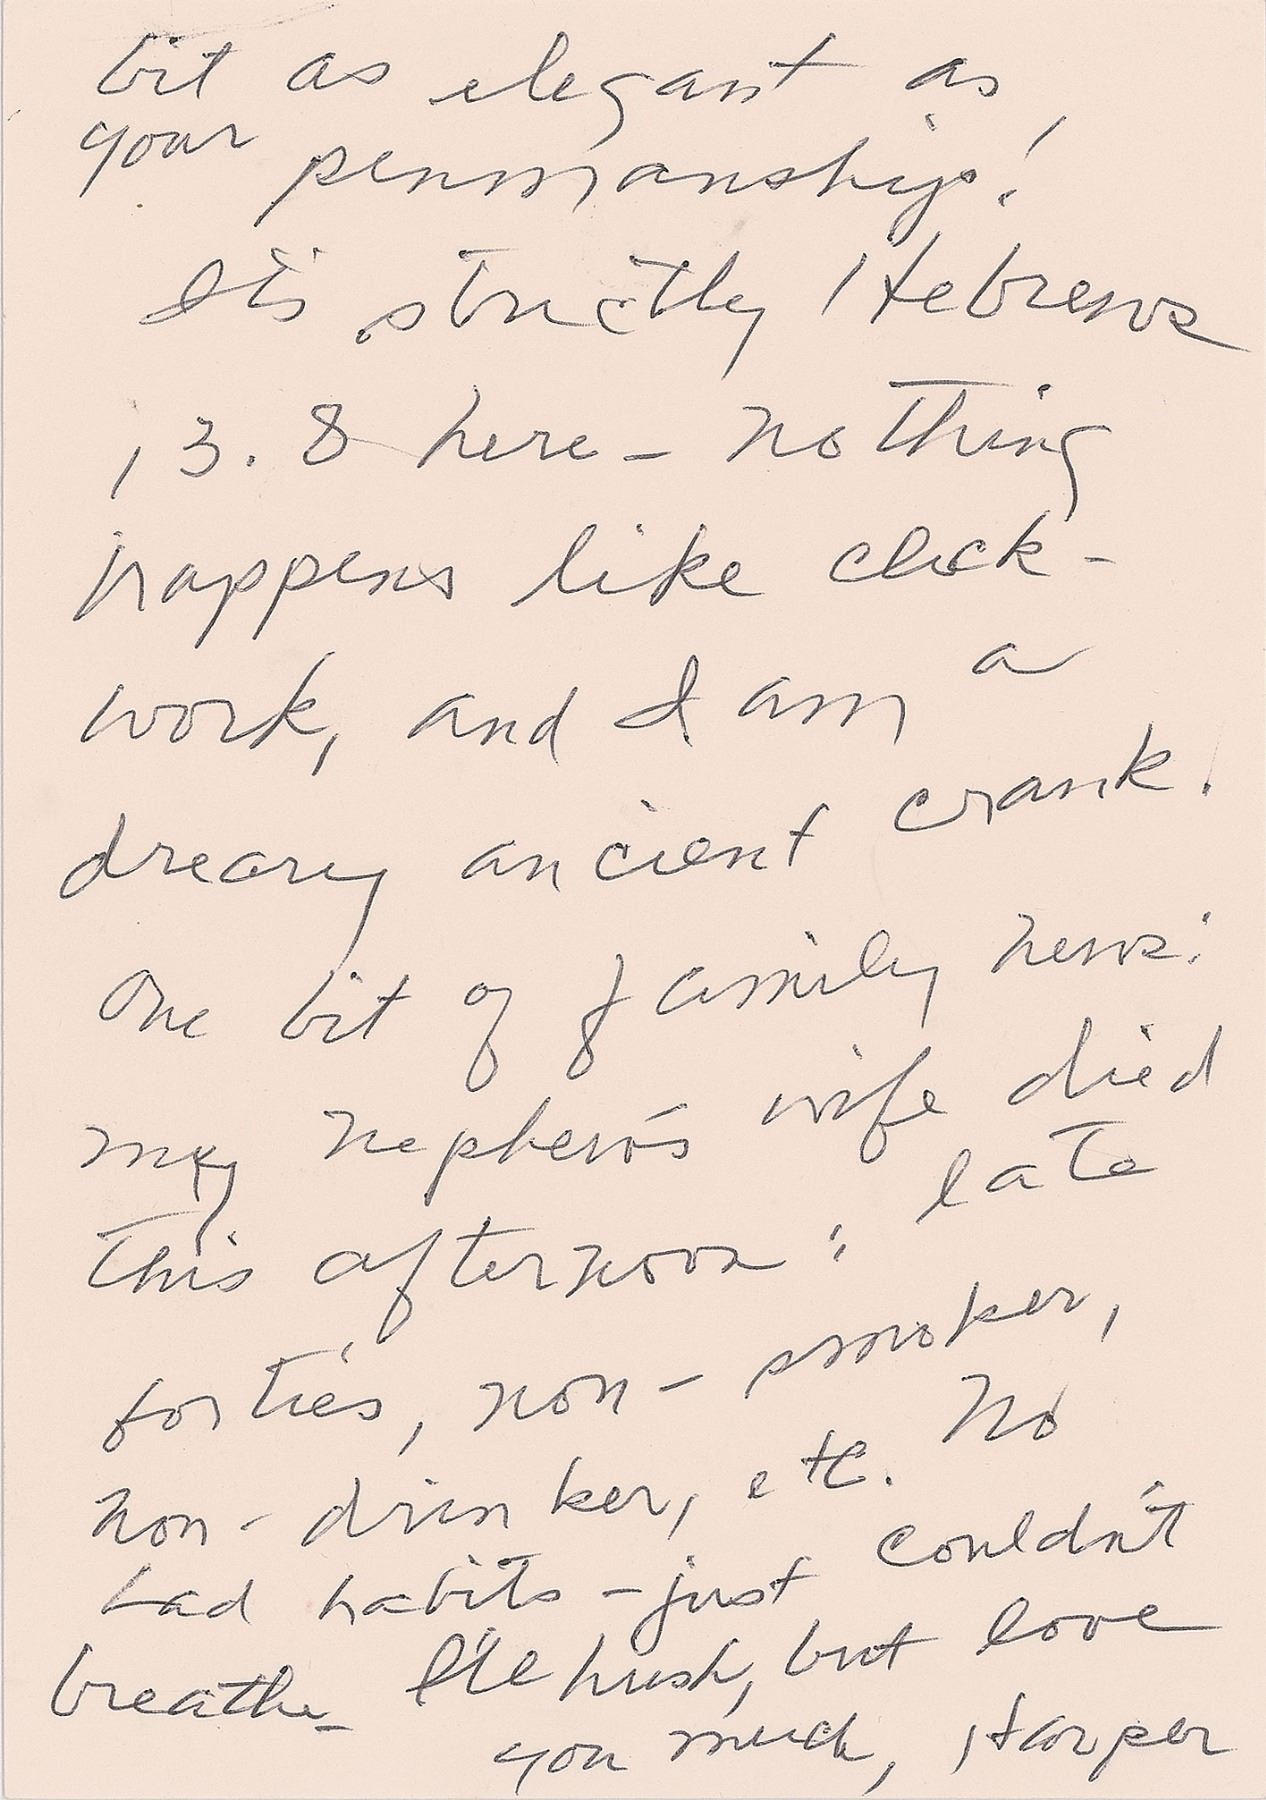 bit as elegant as
your penmanship!
It's strictly Hebrews
13.8 here - nothing
happens like clock-
work, and I am a
dreary ancient crank.
One bit of family news:
my nephew's wife died
this afternoon: late
forties, non-smoker,
non-drinker, etc. No
bad habits - just couldn't
breathe - I'll hush, but love
you much, Harper